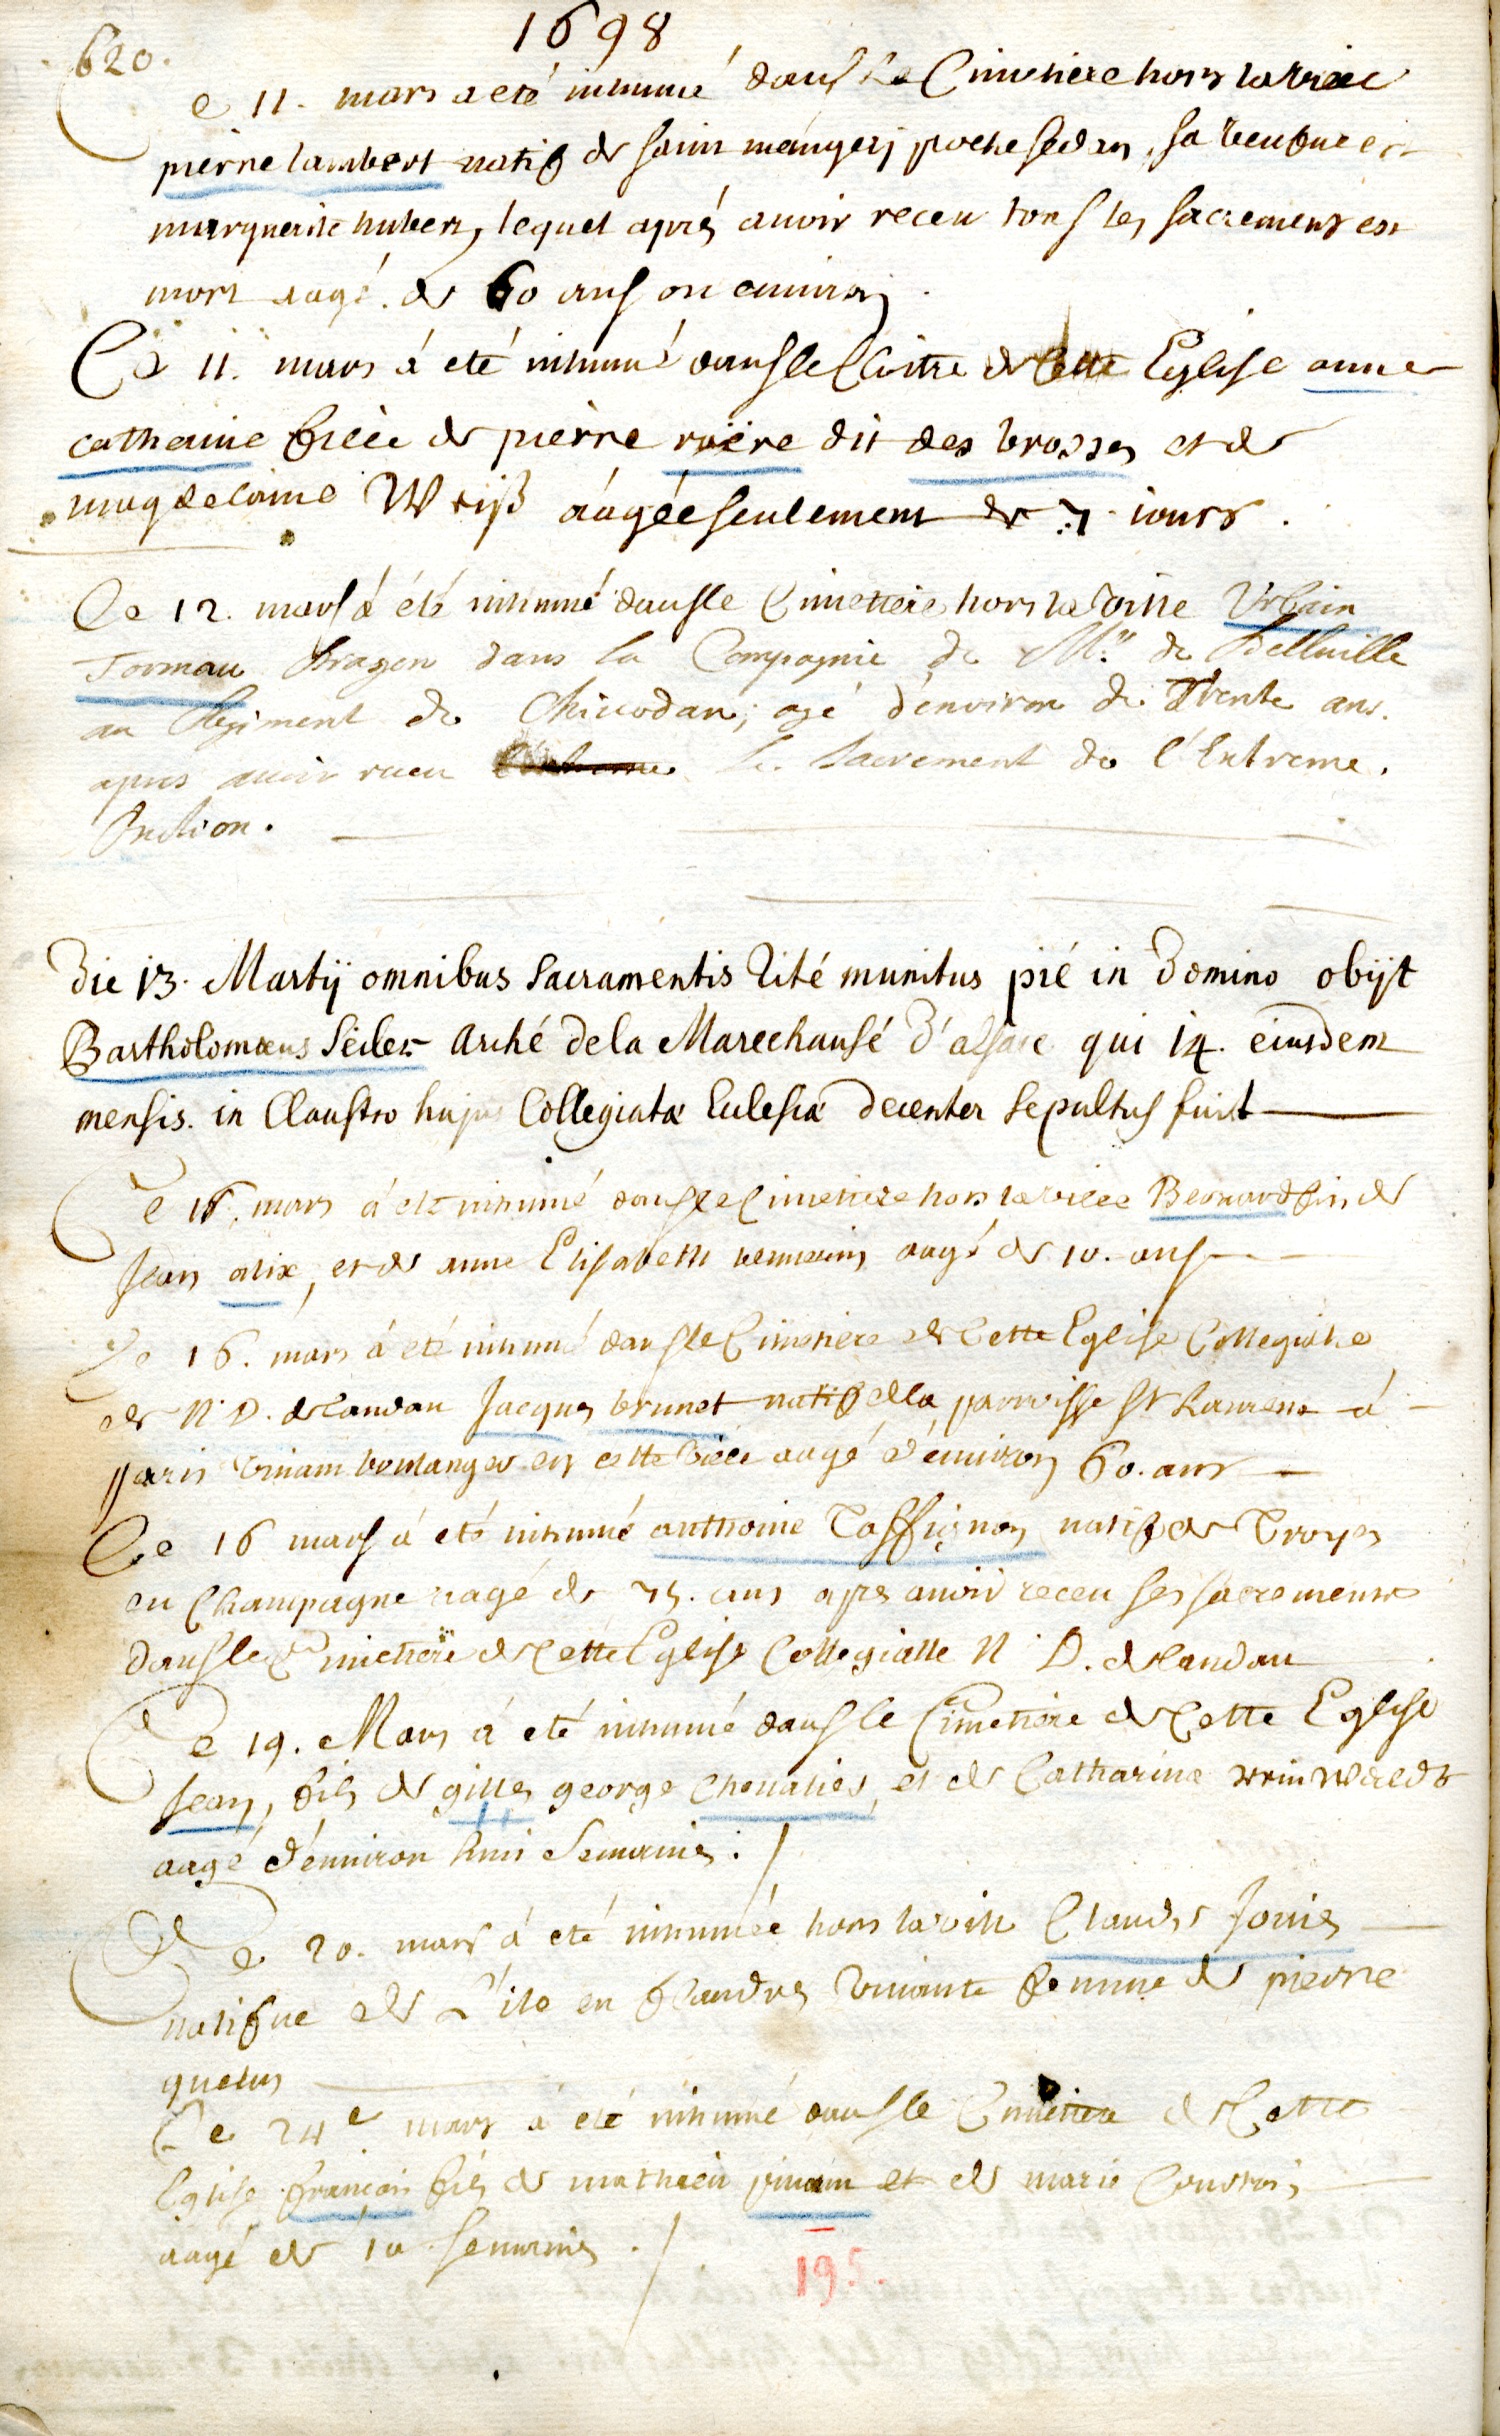 620.
1698
Ce 11. mars a eté inhumé dans le Cimetiere hors la ville
pierre lambert natif de saint mangesj proche sedan, sa veufue est
marguerite hubert, lequel aprés auoir receu tous les sacrements est
mort aagé. de 60 ans ou enuiron.
Ce 11. mars á eté inhumé dans le Cloitre de Cette Eglise anne
catherine fille de pierre rüere dit des brosses et de
magdelaine Weiß áagée seulement de 7. iours.
Ce 12. mars á été inhumé dans le Cimettiere hors la ville Vrbain
Tormau Dragon dans la Compagnie de Mr. de Belleuille
au Regiment de Chicodan; agé d'environ de Trente ans.
apres auoir receu le Sacrement de l'Extreme.
Onction.
Die 13. Martij omnibus Sacramentis rité munitus pié in Domino obijt
Bartholomæus Seiler Arché de la Marechausé d'alsace qui 14. eiusdem
mensis. in Claustro hujus Collegiatæ Eclesiæ decenter sepultus fuit
Ce 16. mars á eté inhumé dans le Cimetiere hors la ville Bernard fils de
Jean alix, et de anne Elisabeth aagé de 10. ans
Ce 16. mars á eté inhumé dans le Cimetiere de Cette Eglise Collegiatte
de N. D. de landau Jacques brunet natif de la parroisse St Laurent á
paris viuant boulanger en cette ville aagé d'enuiron 60. ans
Ce 16 mars á eté inhumé anthoine Taffignon natif de Troyes
en Champagne aagé de 75. ans apres auoir receu ses sacrements
dans le Cimetiere de Cette Eglise Collegialle N. D. de landau
Ce 19. Mars á eté inhumé dans le Cimetiere de Cette Eglise
Jean, fils de gilles george cheualier, et de Catharina
aagé d'enuiron huit semaines. /
Ce 20. mars á eté inhumée hors la ville Claude Jouis
natifue de L'ile en flandres viuante femme de pierre
quelus
Ce 24e mars á eté inhumé dans le Cimetiere de Cette
Eglise francois fils de mathieu et de marie
aagé de 10 semaines. /
195.